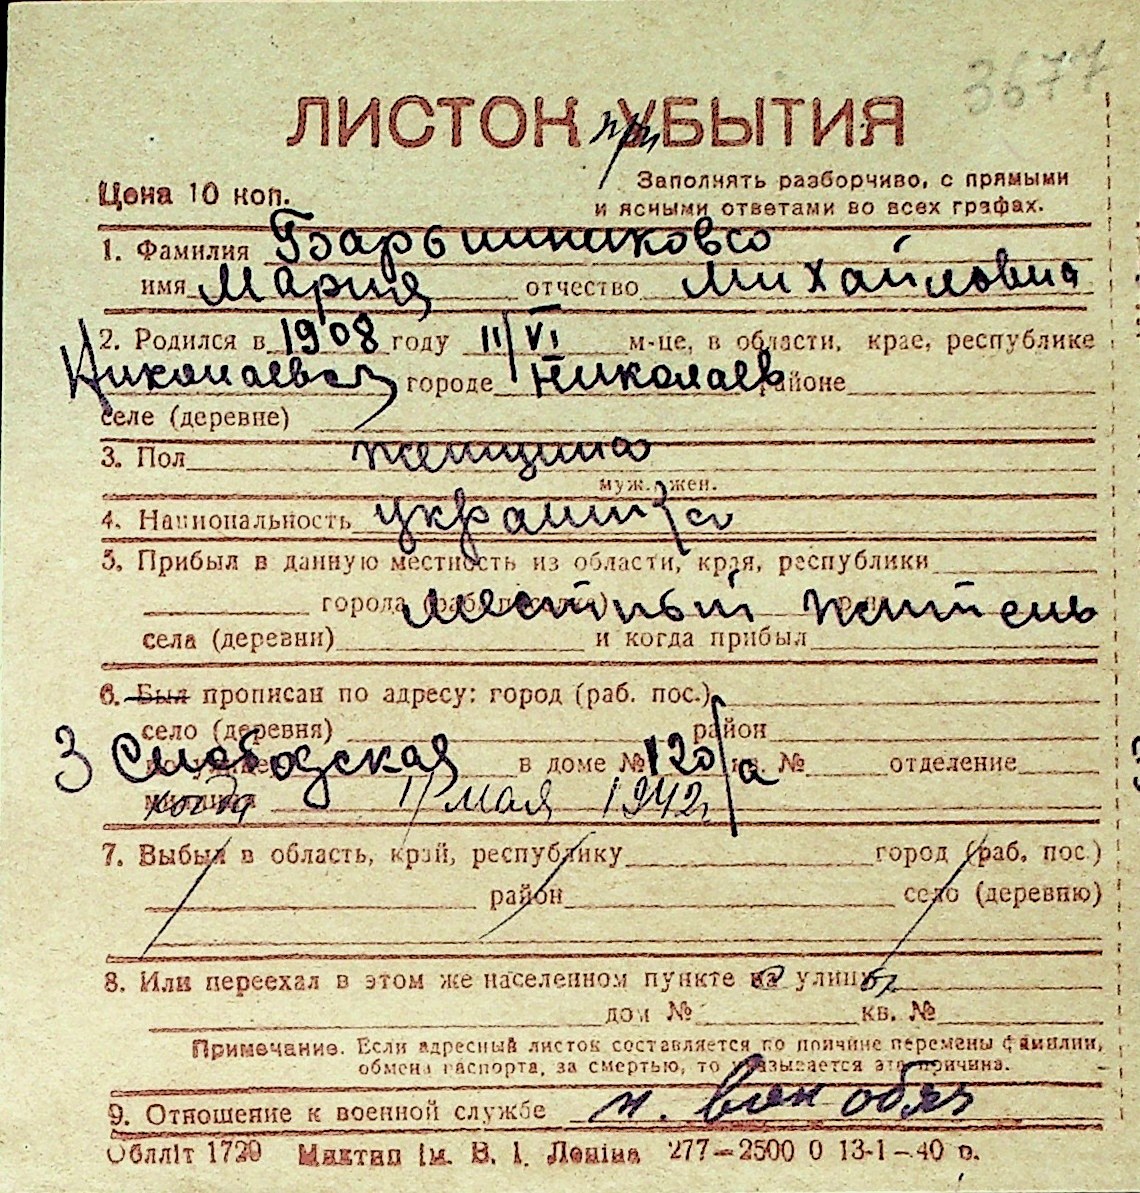 3677
ЛИСТОК при УБЫТИЯ
Цена 10 коп.
Заполнять разборчиво, с прямыми
и ясными ответами во всех графах.
1. Фамилия Барышникова
имя Мария отчество Михайловна
2. Родился в 1908 году 11/VI м-це, в области, крае, республике
Николаевской городе Николаев районе
селе (деревне)
3. Пол женщина
муж. жен.
4. Национальность украинка
5. Прибыл в данную местность из области, края, республики
города местный житель
села (деревни) и когда прибыл
6. Был прописан по адресу: город (раб. пос.)
село (деревня) район
3 Слободская в доме № 120/а кв. № отделение
милиции 11 мая 1942г
7. Выбыл в область, край, республику город (раб. пос.)
район село (деревню)
8. Или переехал в этом же населенном пункте на улицу
дом № кв. №
Примечание. Если адресный листок составляется по причине перемены фамилии,
обмена паспорта, за смертью, то указывается эта причина.
9. Отношение к военной службе н. воен обяз
Обллiт 1720 Миктип iм. В. I. Ленiна 277—2500 0 13-1—40 р.